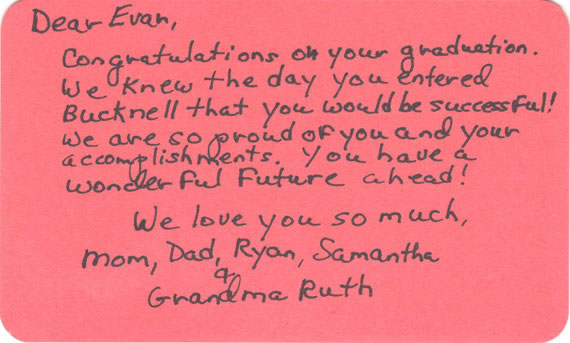 Dear Evan,
Congratulations on your graduation.
We knew the day you entered
Bucknell that you would be successful!
We are so proud of you and your
accomplishments. You have a
wonderful future ahead!
We love you so much,
Mom, Dad, Ryan, Samantha
&
Grandma Ruth